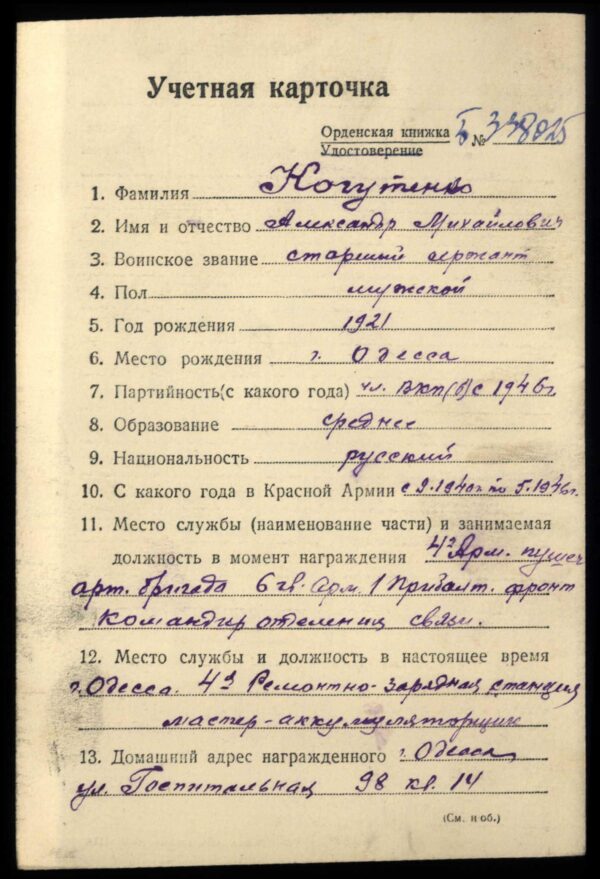 Учетная карточка
Орденская книжка Б № 338025
Удостоверение
1. Фамилия Когутенко
2. Имя и отчество Александр Михайлович
3. Воинское звание старший сержант
4. Пол мужской
5. Год рождения 1921
6. Место рождения г. Одесса
7. Партийность(с какого года) чл. ВКП(б) с 1946г.
8. Образование среднее
9. Национальность русский
10. С какого года в Красной Армии с 9.1940г по 5.1946г.
11. Место службы (наименование части) и занимаемая
должность в момент награждения 4я Арм. пушеч
арт. бригада 6 гв. арм. 1 Прибалт. фронт
командир отделения связи.
12. Место службы и должность в настоящее время
г. Одесса. 4я Ремонтно-зарядная станция
мастер-аккумуляторщик
13. Домашний адрес награжденного г. Одесса
ул. Госпитальная 98 кв. 14
(См. н об.)